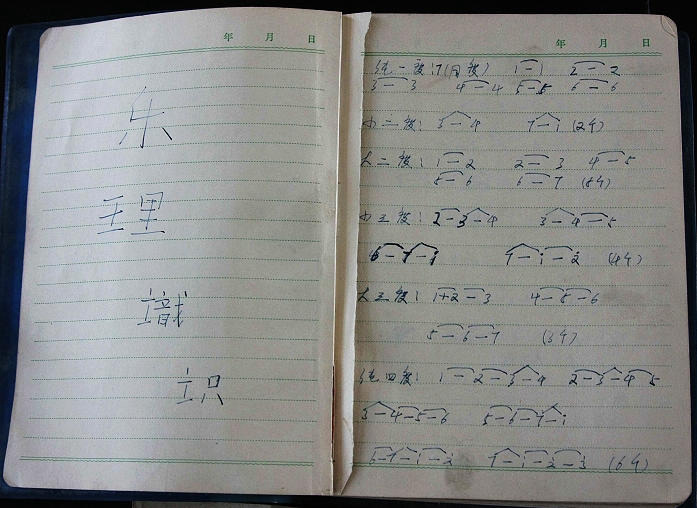 年 月 日
乐
理
識
识
年 月 日
纯一度:7(同度) 1-1 2-2
3-3 4-4 5-5 6-6
小二度: 3-4 7-i (2个)
大二度: 1-2 2-3 4-5
5-6 6-7 (5个)
小三度: 2-3-4 3-4-5
6-7-i 7-i-2 (4个)
大三度: 1-2-3 4-5-6
5-6-7 (3个)
纯四度: 1-2-3-4 2-3-4-5
3-4-5-6 5-6-7-i
6-7-i-2 7-i-2-3 (6个)